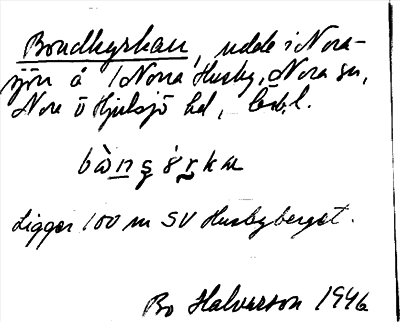 Bondkyrkan, udde i Nora-
sjön å Norra Husby, Nora sn,
Nora o Hjulsjö hd,
Ligger 100 m SV Husbyberget.
Bo Halvarson 1946